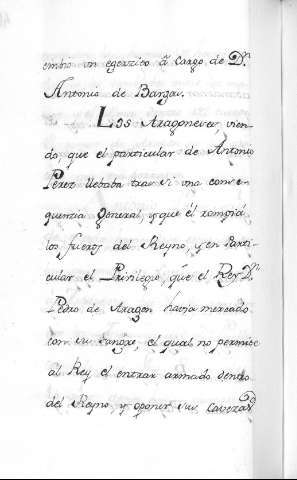 embio un egerzito â cargo de D.n
Antonio de Bargas.
Los Aragoneses, vien-
do que el particular de Antonio
Perez llebaba tras si una conse-
quenzia general, y que él rompiá
los fueros del Reyno, y en Parti-
cular el Privilegio, que el Rey D.n
Pedro de Aragon havia mercado
con su sangre, el qual no permite
al Rey el entrar armado dentro
del Reyno, y oponer sus cavezas